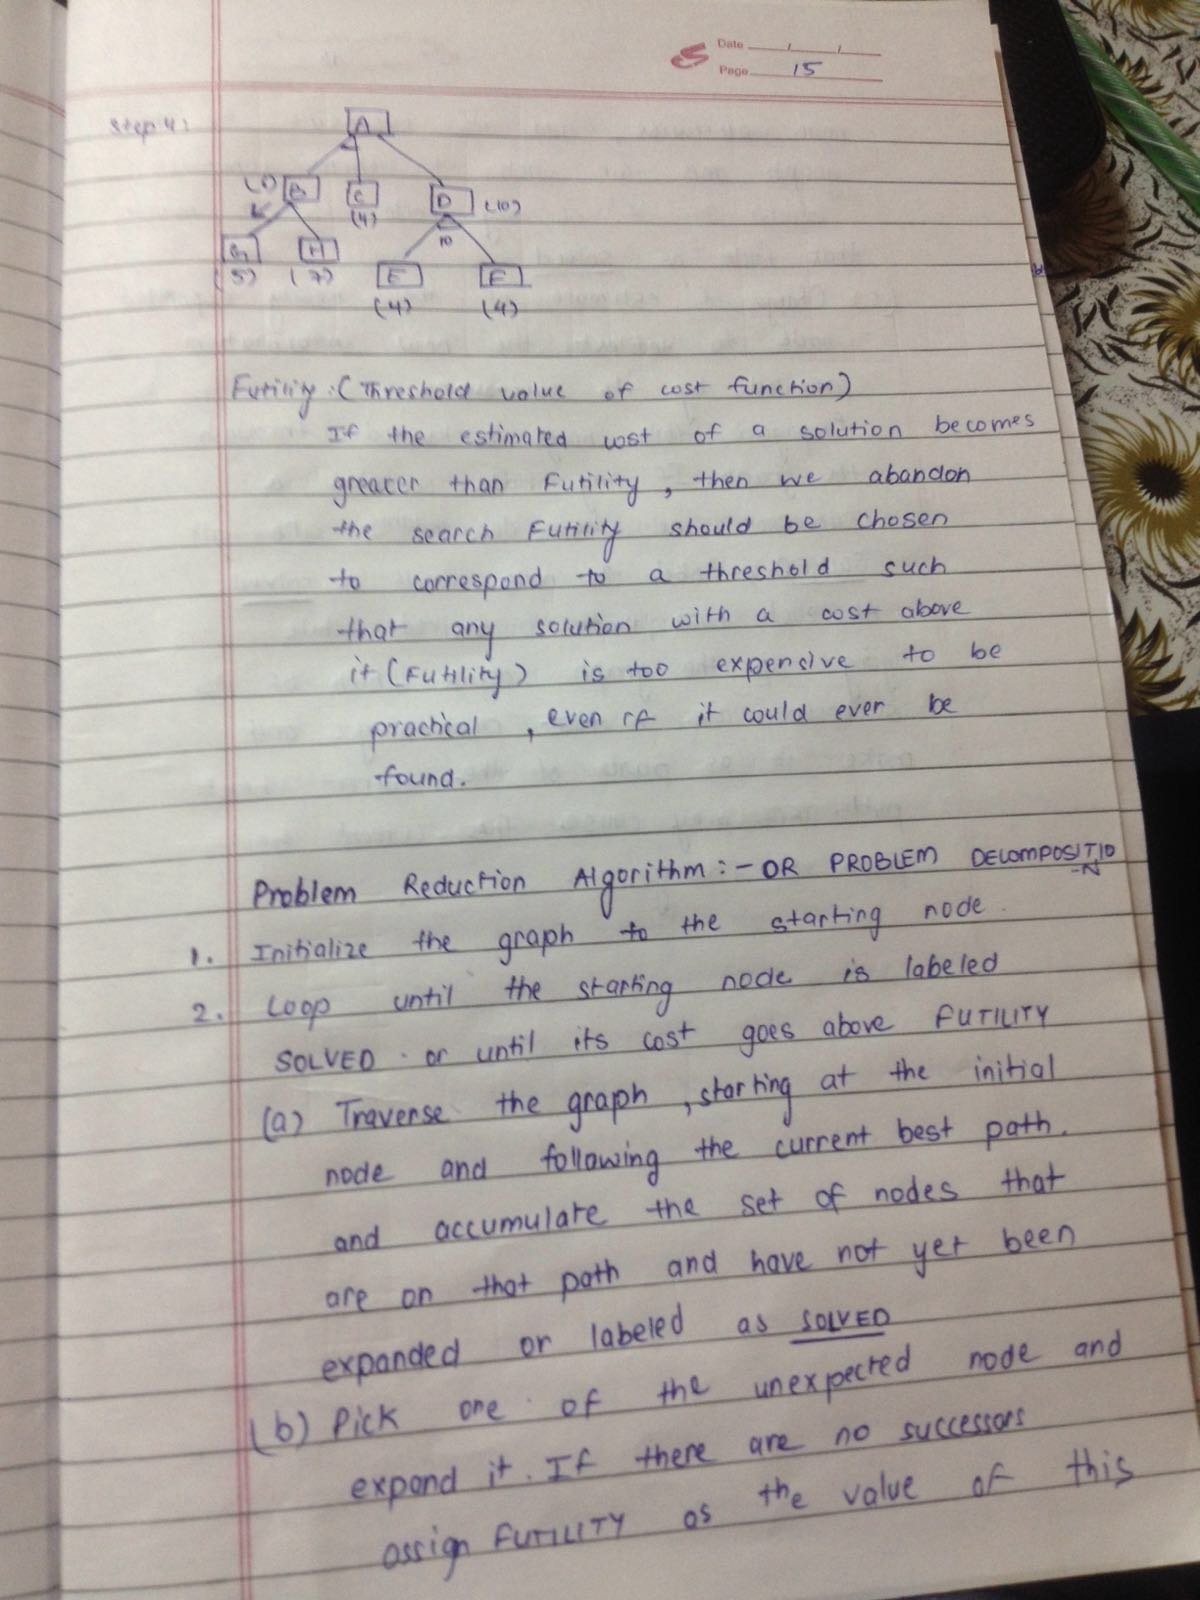 Date
Page 15
Step 4:
A
B C D (10)
(4)
G H 10
(5) (7) E F
(4) (4)
Futility :( Threshold value of cost function)
If the estimated cost of a solution becomes
greater than Futility, then we abandon
the search Futility should be chosen
to correspond to a threshold such
that any solution with a cost above
it (Futility) is too expensive to be
practical, even if it could ever be
found.
Problem Reduction Algorithm :- OR PROBLEM DECOMPOSITIO
-N
1. Initialize the graph to the starting node.
2. Loop until the starting node is labeled
SOLVED or until its cost goes above FUTILITY
(a) Traverse the graph, starting at the initial
node and following the current best path.
and accumulate the set of nodes that
are on that path and have not yet been
expanded or labeled as SOLVED
(b) Pick one of the unexpected node and
expand it. If there are no successors
assign FUTILITY as the value of this